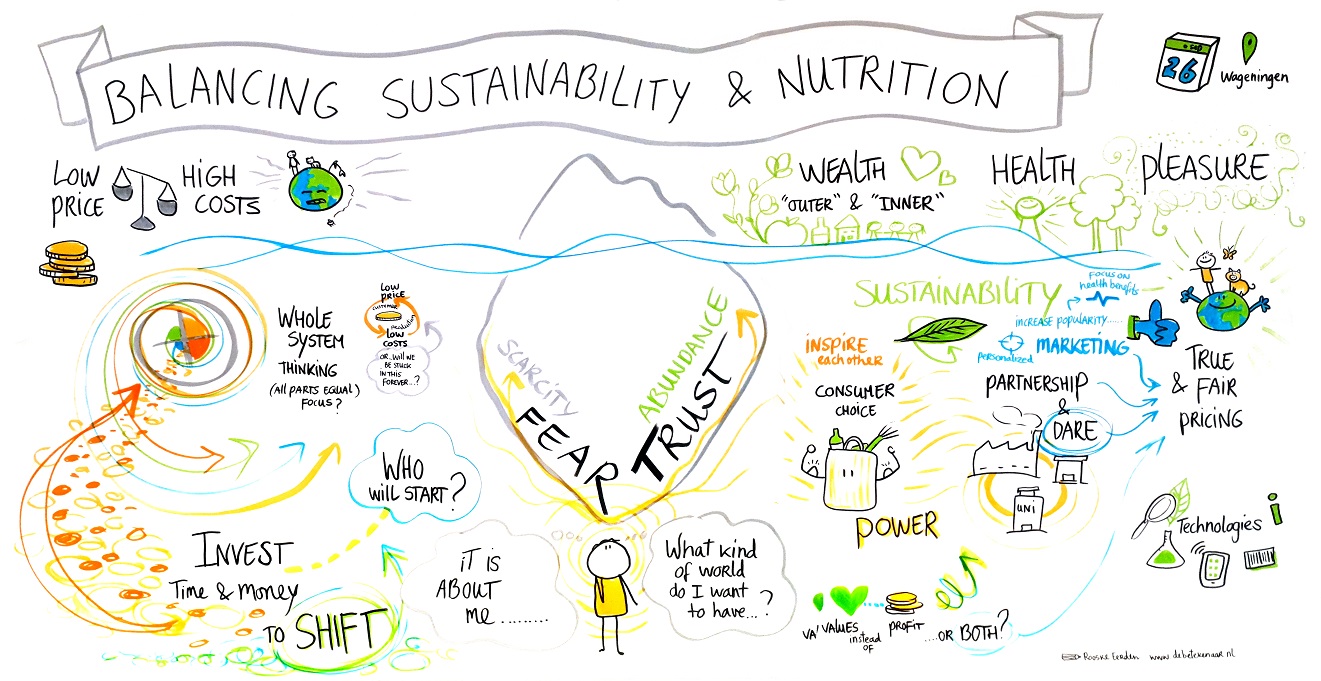 BALANCING SUSTAINABILITY & NUTRITION
26
Wageningen
LOW
PRICE
HIGH
COSTS
WEALTH
"OUTER" & "INNER"
HEALTH
PLEASURE
WHOLE
SYSTEM
THINKING
(All PARTS EQUAL)
FOCUS?
LOW
PRICE
customer
production
LOW
COSTS
OR.. WILL WE
BE STUCK
IN THIS
FOREVER..?
SCARCITY
FEAR
ABUNDANCE
TRUST
SUSTAINABILITY
FOCUS ON
health benefits
INCREASE POPULARITY......
personalized
MARKETING
INSPIRE
each other
CONSUMER
CHOICE
POWER
PARTNERSHIP
&
DARE
UNI
TRUE
& FAIR
PRICING
Technologies
i
WHO
WILL START?
INVEST
Time & Money
TO SHIFT
iT iS
ABOUT
ME.........
What kind
of world
do I want
to have...?
VA' VALUES
instead
OF
PROFIT
....OR BOTH?
Rooske Eerden www.debetekenaar.nl